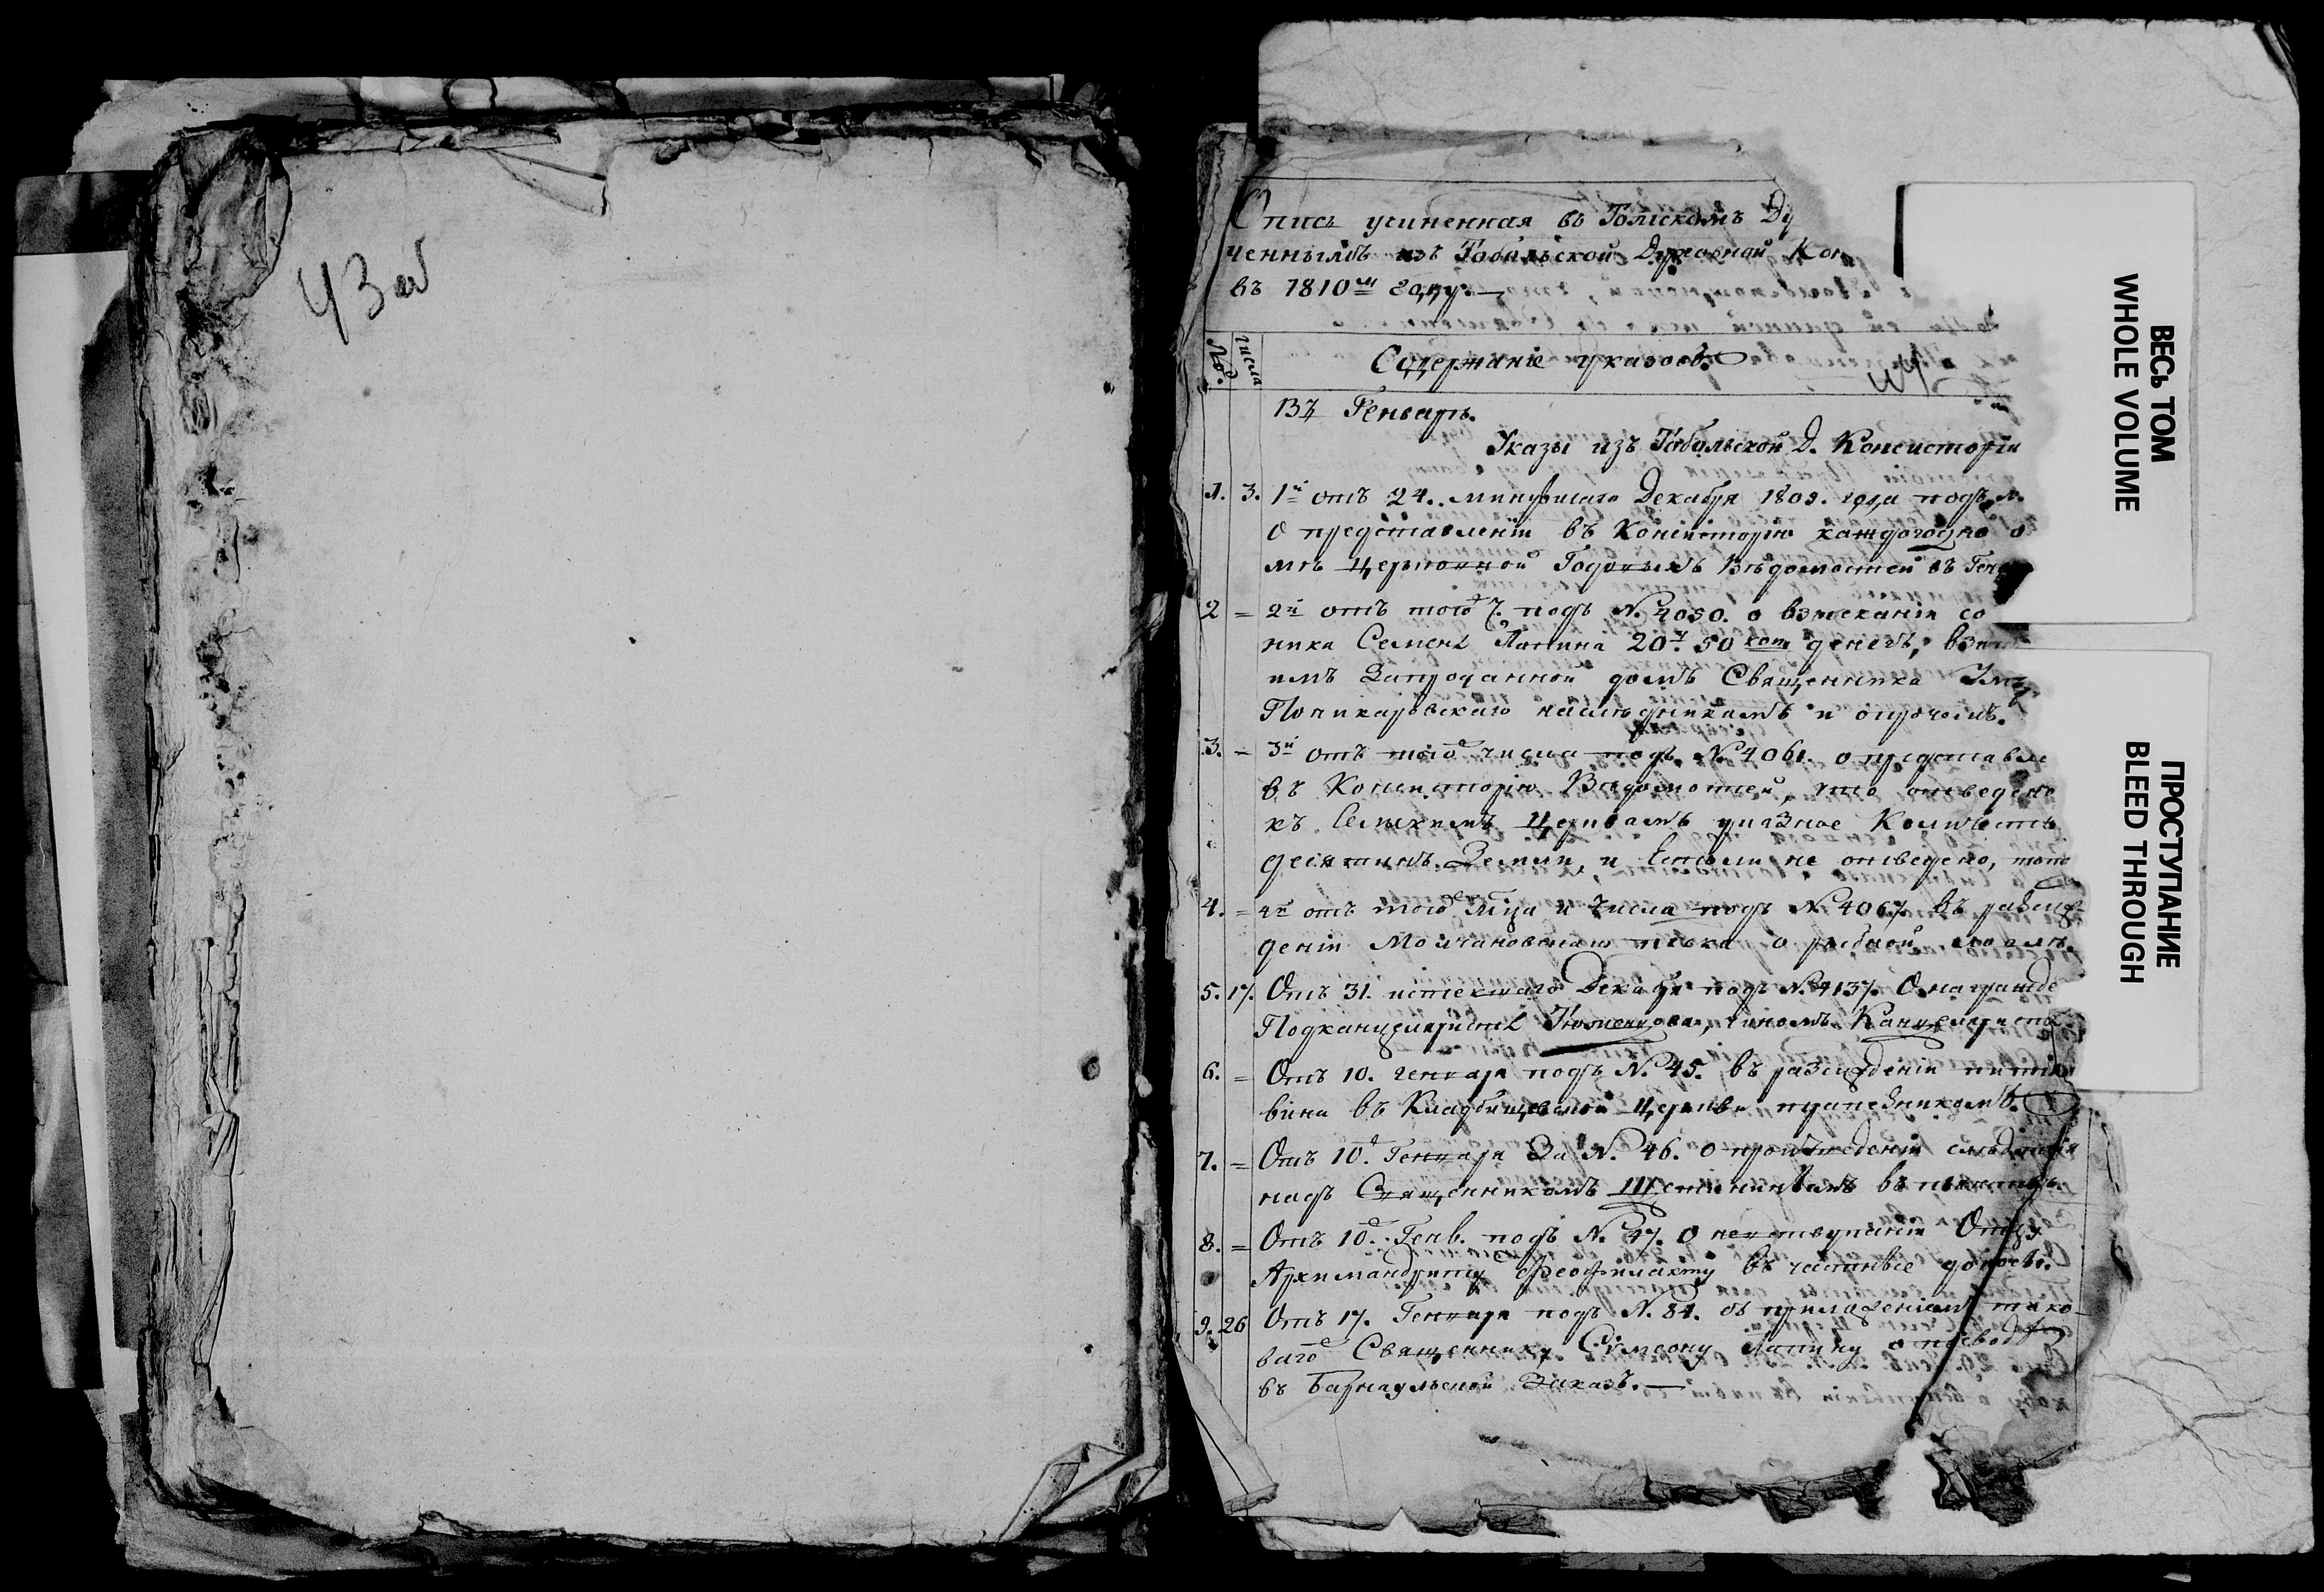 43 об
Опись учиненная въ Томскомъ Ду
ченнымъ изъ Тобольской Духовной Кон
въ 1810м году.—
№. числа Содержаніе указовъ.
44
Въ Генварѣ.
Указы изъ Тобольской Д. Консисторіи
1. 3. 1й отъ 24. минувшаго Декабря 1809. года подъ №.
О представленіи въ Консисторію каждогодно о
мъ церковной Годовыхъ Вѣдомостей въ Ген
2 = 2й отъ того ч. подъ №4050. о взысканіи со
ника Семена Лапина 20. 50 коп денегъ,
имъ Запроданной домъ Священника
Поликаровскаго наслѣдникамъ и опрочемъ.
3. = 3й отъ того числа подъ №4061. о представле
въ Консисторію Вѣдомостей, что отведено
къ Сельскимъ церквамъ указное Количеств
десятинъ Земли, и Естьли не отведено, то
4. = 4й отъ того мца и числа подъ №4067. въ разсуж
деніи Молчановскаго песка о рыбной ловлѣ.
5. 17. Отъ 31. истекшаго Декабря подъ №4137. О награжде
Подканцеляриста Тюменцова, чиномъ Канцеляриста.
6. = Отъ 10. генваря подъ №. 45. въ разсужденіи
вина въ Кладбищенской церкви
7. = Отъ 10. Генваря За №. 46. о произведеніи слѣдствія
надъ Священникомъ въ
8. = Отъ 10. Генв. подъ №. 47. О невступаніи Отцу
Архимандриту Феофилакту въ частные доносы.
9. 26 Отъ 17. Генваря подъ №. 84. съ приложеніемъ тако-
ваго Священнику Сѵмеону Лапину о
въ Барнаульской Заказъ.—
ВЕСЬ ТОМ
WHOLE VOLUME
ПРОСТУПАНИЕ
BLEED THROUGH